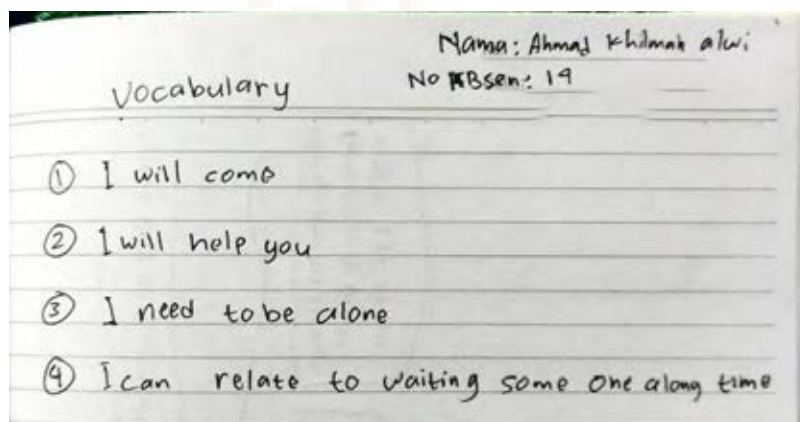 Nama: Ahmad Khilmah alwi
No ABsen: 19
Vocabulary
① I will come
② I will help you
③ I need to be alone
④ I can relate to waiting some one along time